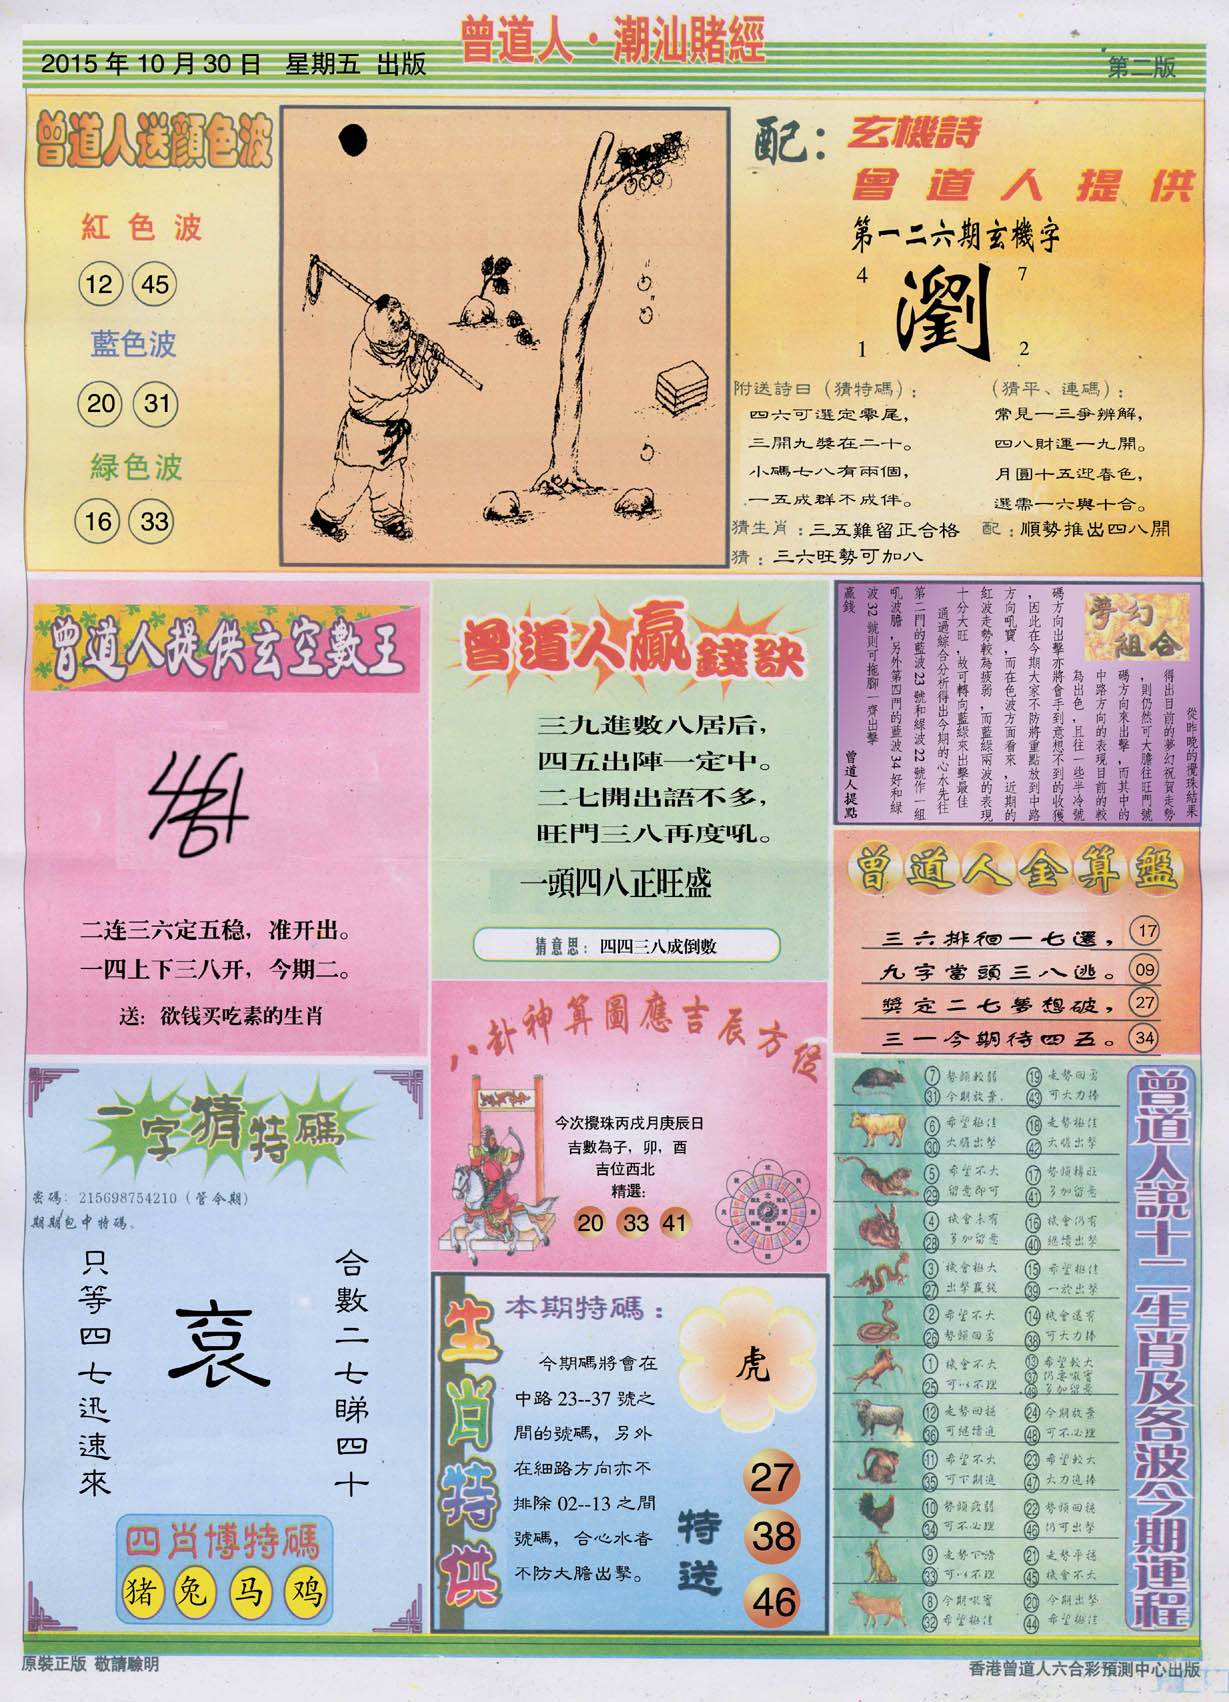 曾道人·潮汕賭經
2015年10月30日 星期五 出版
第二版
曾道人送顏色波
紅色波
12 45
藍色波
20 31
緑色波
16 33
配：玄機詩
曾道人提供
第一二六期玄機字
4 7
瀏
1 2
附送詩曰（猜特碼）：
四六可選定零尾，
三開九獎在二十。
小碼七八有兩個，
一五成群不成伴。
（猜平、連碼）：
常見一三爭辨解，
四八財運一九開。
月圓十五迎春色，
選需一六與十合。
猜生肖：三五難留正合格
配：順勢推出四八開
猜：三六旺勢可加八
曾道人提供玄空數王
二连三六定五稳，准开出。
一四上下三八开，今期二。
送：欲钱买吃素的生肖
曾道人贏錢訣
三九進數八居后，
四五出陣一定中。
二七開出語不多，
旺門三八再度吼。
一頭四八正旺盛
猜意思：四四三八成倒數
夢幻
組合
從昨晚的攪珠結果
得出目前的夢幻祝賀走勢
，則仍然可大膽往旺門號
碼方向來出擊，而其中的
中路方向的表現目前的較
為出色，且往一些半冷號
碼方向出擊亦將會手到意想不到的收獲
，因此在今期大家不防將重點放到中路
方向吼寶，而在色波方面看來，近期的
紅波走勢較為疲弱，而藍綠兩波的表現
十分大旺，故可轉向藍綠來出擊最佳
通過綜合分析得出今期的心水先往
第二門的藍波23號和綠波22號作一組
吼波膽，另外第四門的藍波34好和綠
波32號則可拖腳一齊出擊
贏錢
曾道人提點
曾道人金算盤
三六排徊一七還，17
九字當頭三八逃。09
獎定二七夢想破，27
三一今期待四五。34
八卦神算圖應吉辰方位
今次攪珠丙戌月庚辰日
吉數為子，卯，酉
吉位西北
精選：
20 33 41
一字猜特碼
密碼：215698754210（管今期）
期期包中特碼。
合數二七睇四十
哀
只等四七迅速來
四肖博特碼
猪 兔 马 鸡
生肖特供
本期特碼：
今期碼將會在
中路23--37號之
間的號碼，另外
在細路方向亦不
排除02--13之間
號碼，合心水者
不防大膽出擊。
虎
特送
27
38
46
曾道人説十二生肖及各波今期運程
7 勢頭較弱 19 走勢回勇
31 今期放棄. 43 可大力捧
6 希望極佳 18 走勢極佳
30 大膽出擊 42 大膽出擊
5 希望不大 17 勢頭轉旺
29 留意即可 41 多加留意
4 機會未有 16 機會仍有
28 多加留意 40 繼續出擊
3 機會極大 15 希望極佳
27 出擊贏錢 39 一於出擊
2 希望不大 14 機會還有
26 勢頭回勇 38 可大力捧
1 機會不大 13 希望較大
25 可以不理 37 仍要吸寶
49 多加留意
12 走勢回穩 24 今期放棄
36 可繼續追 48 可不必理
11 希望不大 23 希望較大
35 可下期追 47 大力追捧
10 勢頭疲弱 22 勢頭回穩
34 可不必理 46 仍可出擊
9 走勢下滑 21 走勢平穩
33 可以不理 45 機會不大
8 今期吸寶 20 今期出擊
32 希望極佳 44 希望極佳
原裝正版 敬請驗明
香港曾道人六合彩預測中心出版